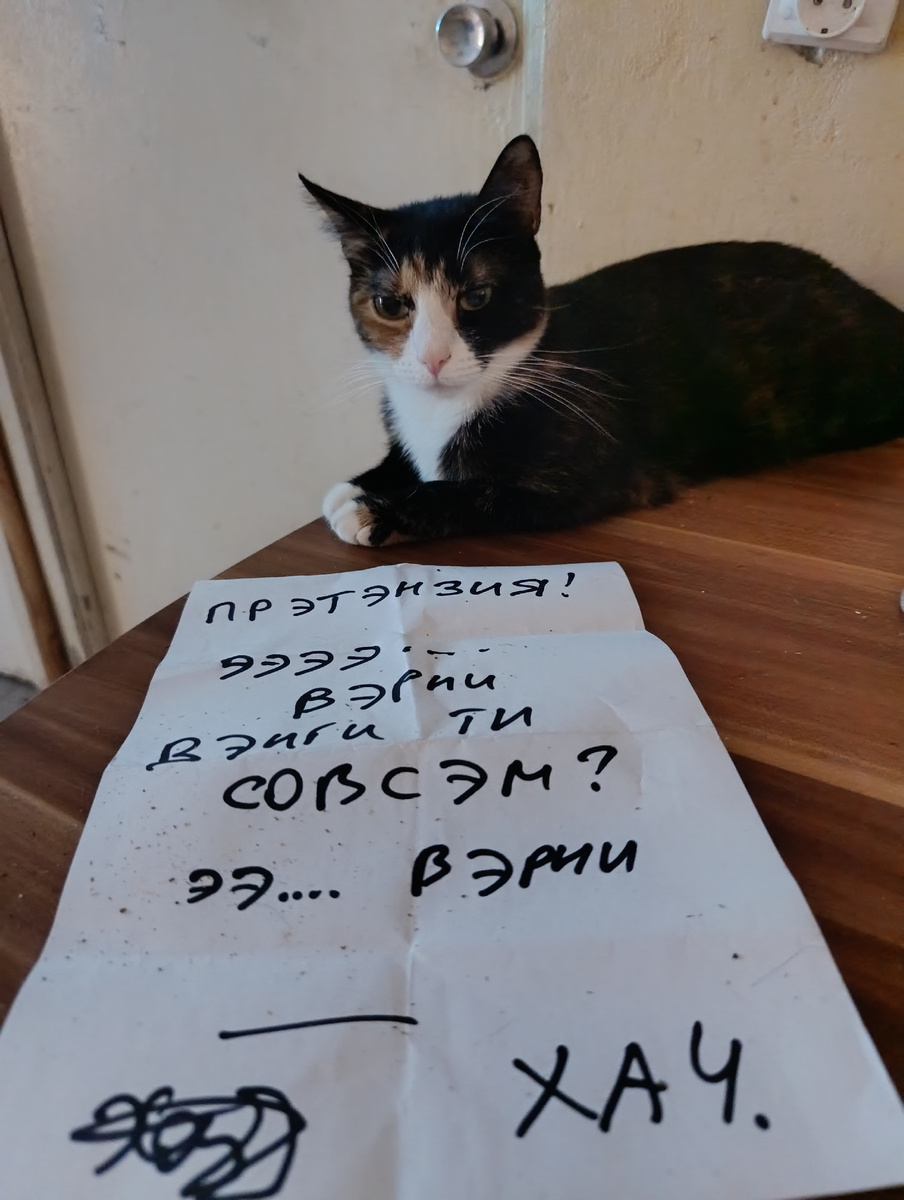 ПРЭТЭНЗИЯ!
ЭЭЭЭ......
ВЭРНИ
ВЭНГИ ТИ
СОВСЭМ?
ЭЭ.... ВЭРНИ
ХАЧ.